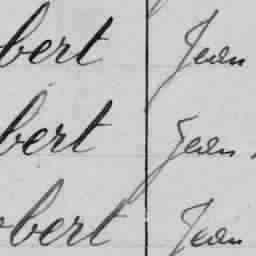 bert Jean
bert Jean
obert Jean